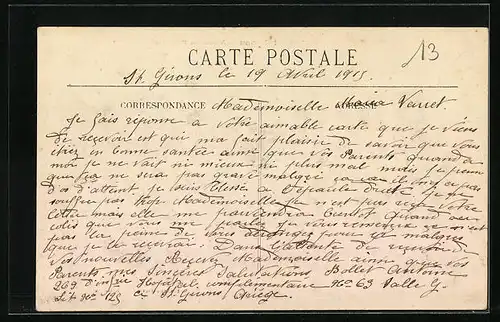 13
CARTE POSTALE
St. Girons le 19 Avril 1915
CORRESPONDANCE Mademoiselle Maria Verret
Je fais réponse a votre aimable carte que je viens
de recevoir et qui ma fait plaisir de savoir que vous
étiez en bonne santée ainsi que vos Parents quand a
moi je ne vait ni mieux ni plus mal mais je pense
que sa ne sera pas grave malgré
d'os d'attent je suis Blessé a l'epaule droite je ne
souffre pas trop Mademoiselle je n'est pas reçu votre
lettre mais elle me parviendra bientot Quand au
colis que vous me parler je vous remercie ce n'est
pas la peine de vous déranger pour
que je le recevoir. Dans l'attente de recevoir
vos nouvelles, Recever Mademoiselle ainsi que vos
Parents mes Sincères Salutations Bollet Antoine
269 d'inf Hopital complémentaire No 63 Salle G.
Lit No 125 St Girons Ariège.